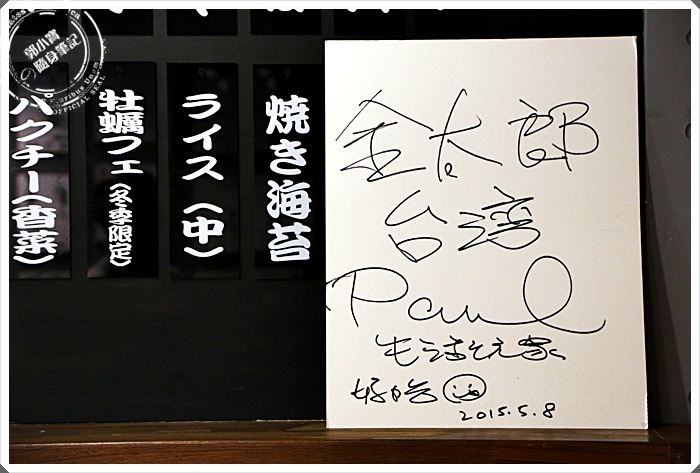 郭小寶
の
隨身筆記
OFFICIAL SEAL
焼き海苔
ライス(中)
牡蠣フェ(冬季限定)
パクチー(香菜)
金太郎
台湾
Paul
生活玩家
好吃
2015.5.8